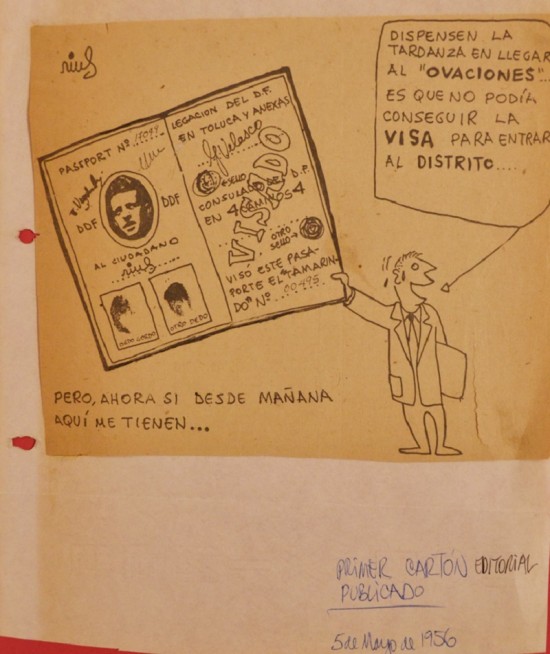 rius
DISPENSEN LA
TARDANZA EN LLEGAR
AL "OVACIONES"...
ES QUE NO PODÍA
CONSEGUIR LA
VISA PARA ENTRAR
AL DISTRITO....
PASSPORT Nº
DDF
DDF
AL CIUDADANO
rius
OTRO DEDO
LEGACION DEL D.F.
EN TOLUCA Y ANEXAS
Velasco
SELLO
VISADO
CONSULADO DEL D.F.
EN 4 CAMINOS 4
OTRO
SELLO
VISÓ ESTE PASA-
PORTE EL "TAMARIN-
DO" Nº
PERO, AHORA SI DESDE MAÑANA
AQUÍ ME TIENEN...
PRIMER CARTÓN EDITORIAL
PUBLICADO
5 de Mayo de 1956